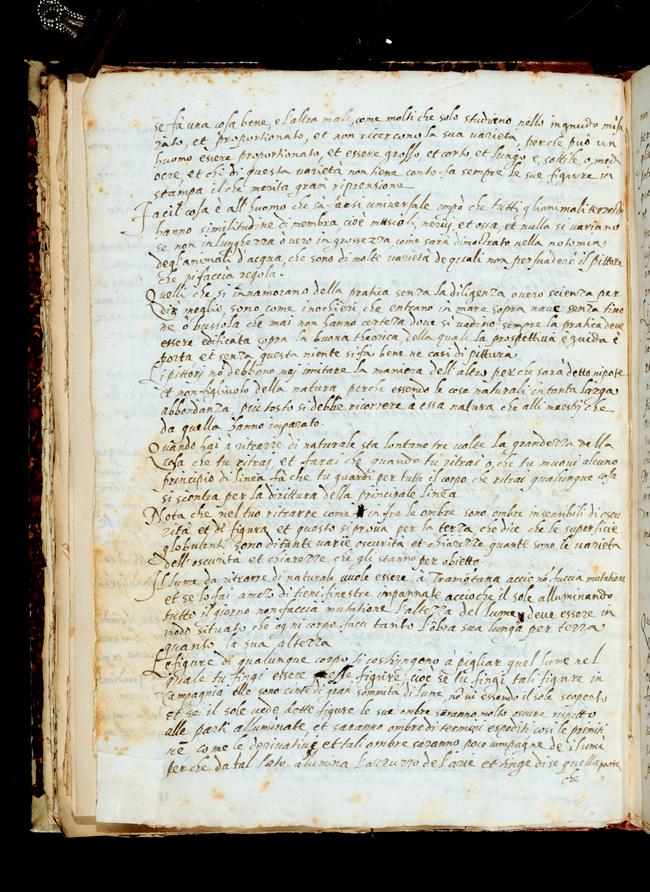 se fà una cosa bene, e l'altra male, come molti che solo studiano nello ingnudo misu
rato, et proportionato, et non ricercono la sua varietà, perche può un
huomo essere proportionato, et essere grosso, et corto, et lungo, e sottile, o med
ocre, et chi di questa varietà non tiene conto fa sempre le sue figure in
stampa il che merita gran riprensione
Facil cosa è all'huomo che sa farsi universale impò che tutti gli animali terrestri
hanno similitudine di membra, cioè muscoli, nervij, et ossa, et nulla si variano
se non in lunghezza overo in grossezza come sarà dimostrato nella notomia
degl'animali d'acqua, che sono di molte varietà de quali non persuaderò il pittore
che vi faccia regola.
Quelli che si innamorano della pratica senza la diligenza overo scienza per
dir meglio, sono come i nochieri che entrano in mare sopra nave senza timo
ne ò bussola che mai non hanno certezza dove si vadino sempre la pratica deve
essere edificata sopra la buona theorica, della quale la prospettiva e guida è
porta et senza questa niente si fà bene ne casi di pittura.
Li pittori nò debbono mai imitare la maniera dell'altro perche sarà detto nipote
et non figliuolo della natura perche essendo le cose naturali in tanta larga
abbondanza, più tosto si debbe ricorrere à essa natura che alli maestri che
da quella hanno imparato.
Quando hai à ritrarre di naturale sta lontano tre volte la grandezza della
cosa che tu ritrai, et farai che quando tu ritrai ò che tu muovi alcuno
principio di linea fà che tu guardi per tutto il corpo che ritrai qualunque cosa
si scontra per la dirittura della principale linea.
Nota che nel tuo ritrarre come in fra le ombre sono ombre insensibili di oscu
rità et di figura, et questo si prova per la terza che dice che le superficie
globulenti sono di tante varie oscurità et chiarezze quante sono le varietà
dell'oscurità et chiarezze che gli stanno per obietto.
Il lume da ritrarre di naturale vuole essere à Tramotana acciò nō faccia mutatione
et se lo fai à mezo dì tieni finestre impannate acciòche il sole alluminando
tutto il giorno non faccia mutatione l'altezza del lume deve essere in
modo situato che ogni corpo facci tanto l'ōbra sua lunga per terra
quanto la sua alterza
Le figure di qualunque corpo si costringono à pigliar quel lume nel
quale tu fingi essere esse figure cioè se tu fingi tali figure in
campagnia elle sono cinte di gran sommità di lume no vi essendo il sole scoperto
et se il sole vede dette figure le sue ombre saranno molto oscure rispetto
alle parti alluminate, et saranno ombre di termini espediti così le primiti
ve come le derivative et tali ombre saranno poco compagne de i lumi
perche da tal lato allumina l'ascruzzo del'aire et tinge di se quella parte
che